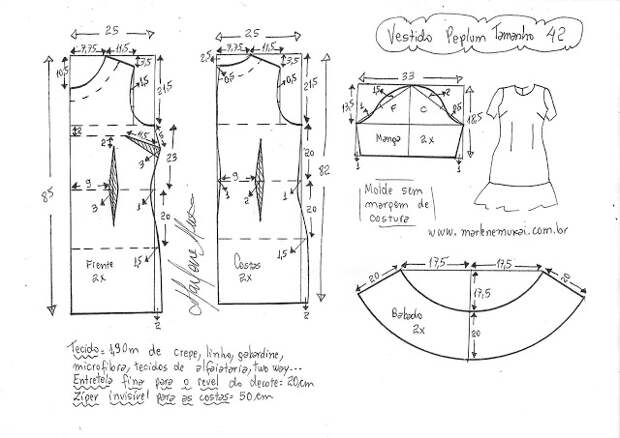 Vestido Peplum Tamanho 42
25
7,75 11,5
10,5
3,5
1,5
21,5
2
2
11,5
3
23
9
3
1
85
20
1,5
Frente
2x
2
25
7,75 11,5
2,5
0,5
3,5
0,5
21,5
20
9
3
1
1
82
20
1,5
Costas
2x
2
Marlene Mukai
33
13,5
1,5
2
1
0,5
F C
18,5
Manga 2x
1
1
Molde sem
margem de
costura
www.marlenemukai.com.br
17,5 17,5
20
20
17,5
Babado
2x
20
Tecido= 1,90m de crepe, linho, gabardine,
microfibra, tecidos de alfaiataria, two way...
Entretela fina para o revel do decote= 20,cm
Zíper invisível para as costas= 50,cm